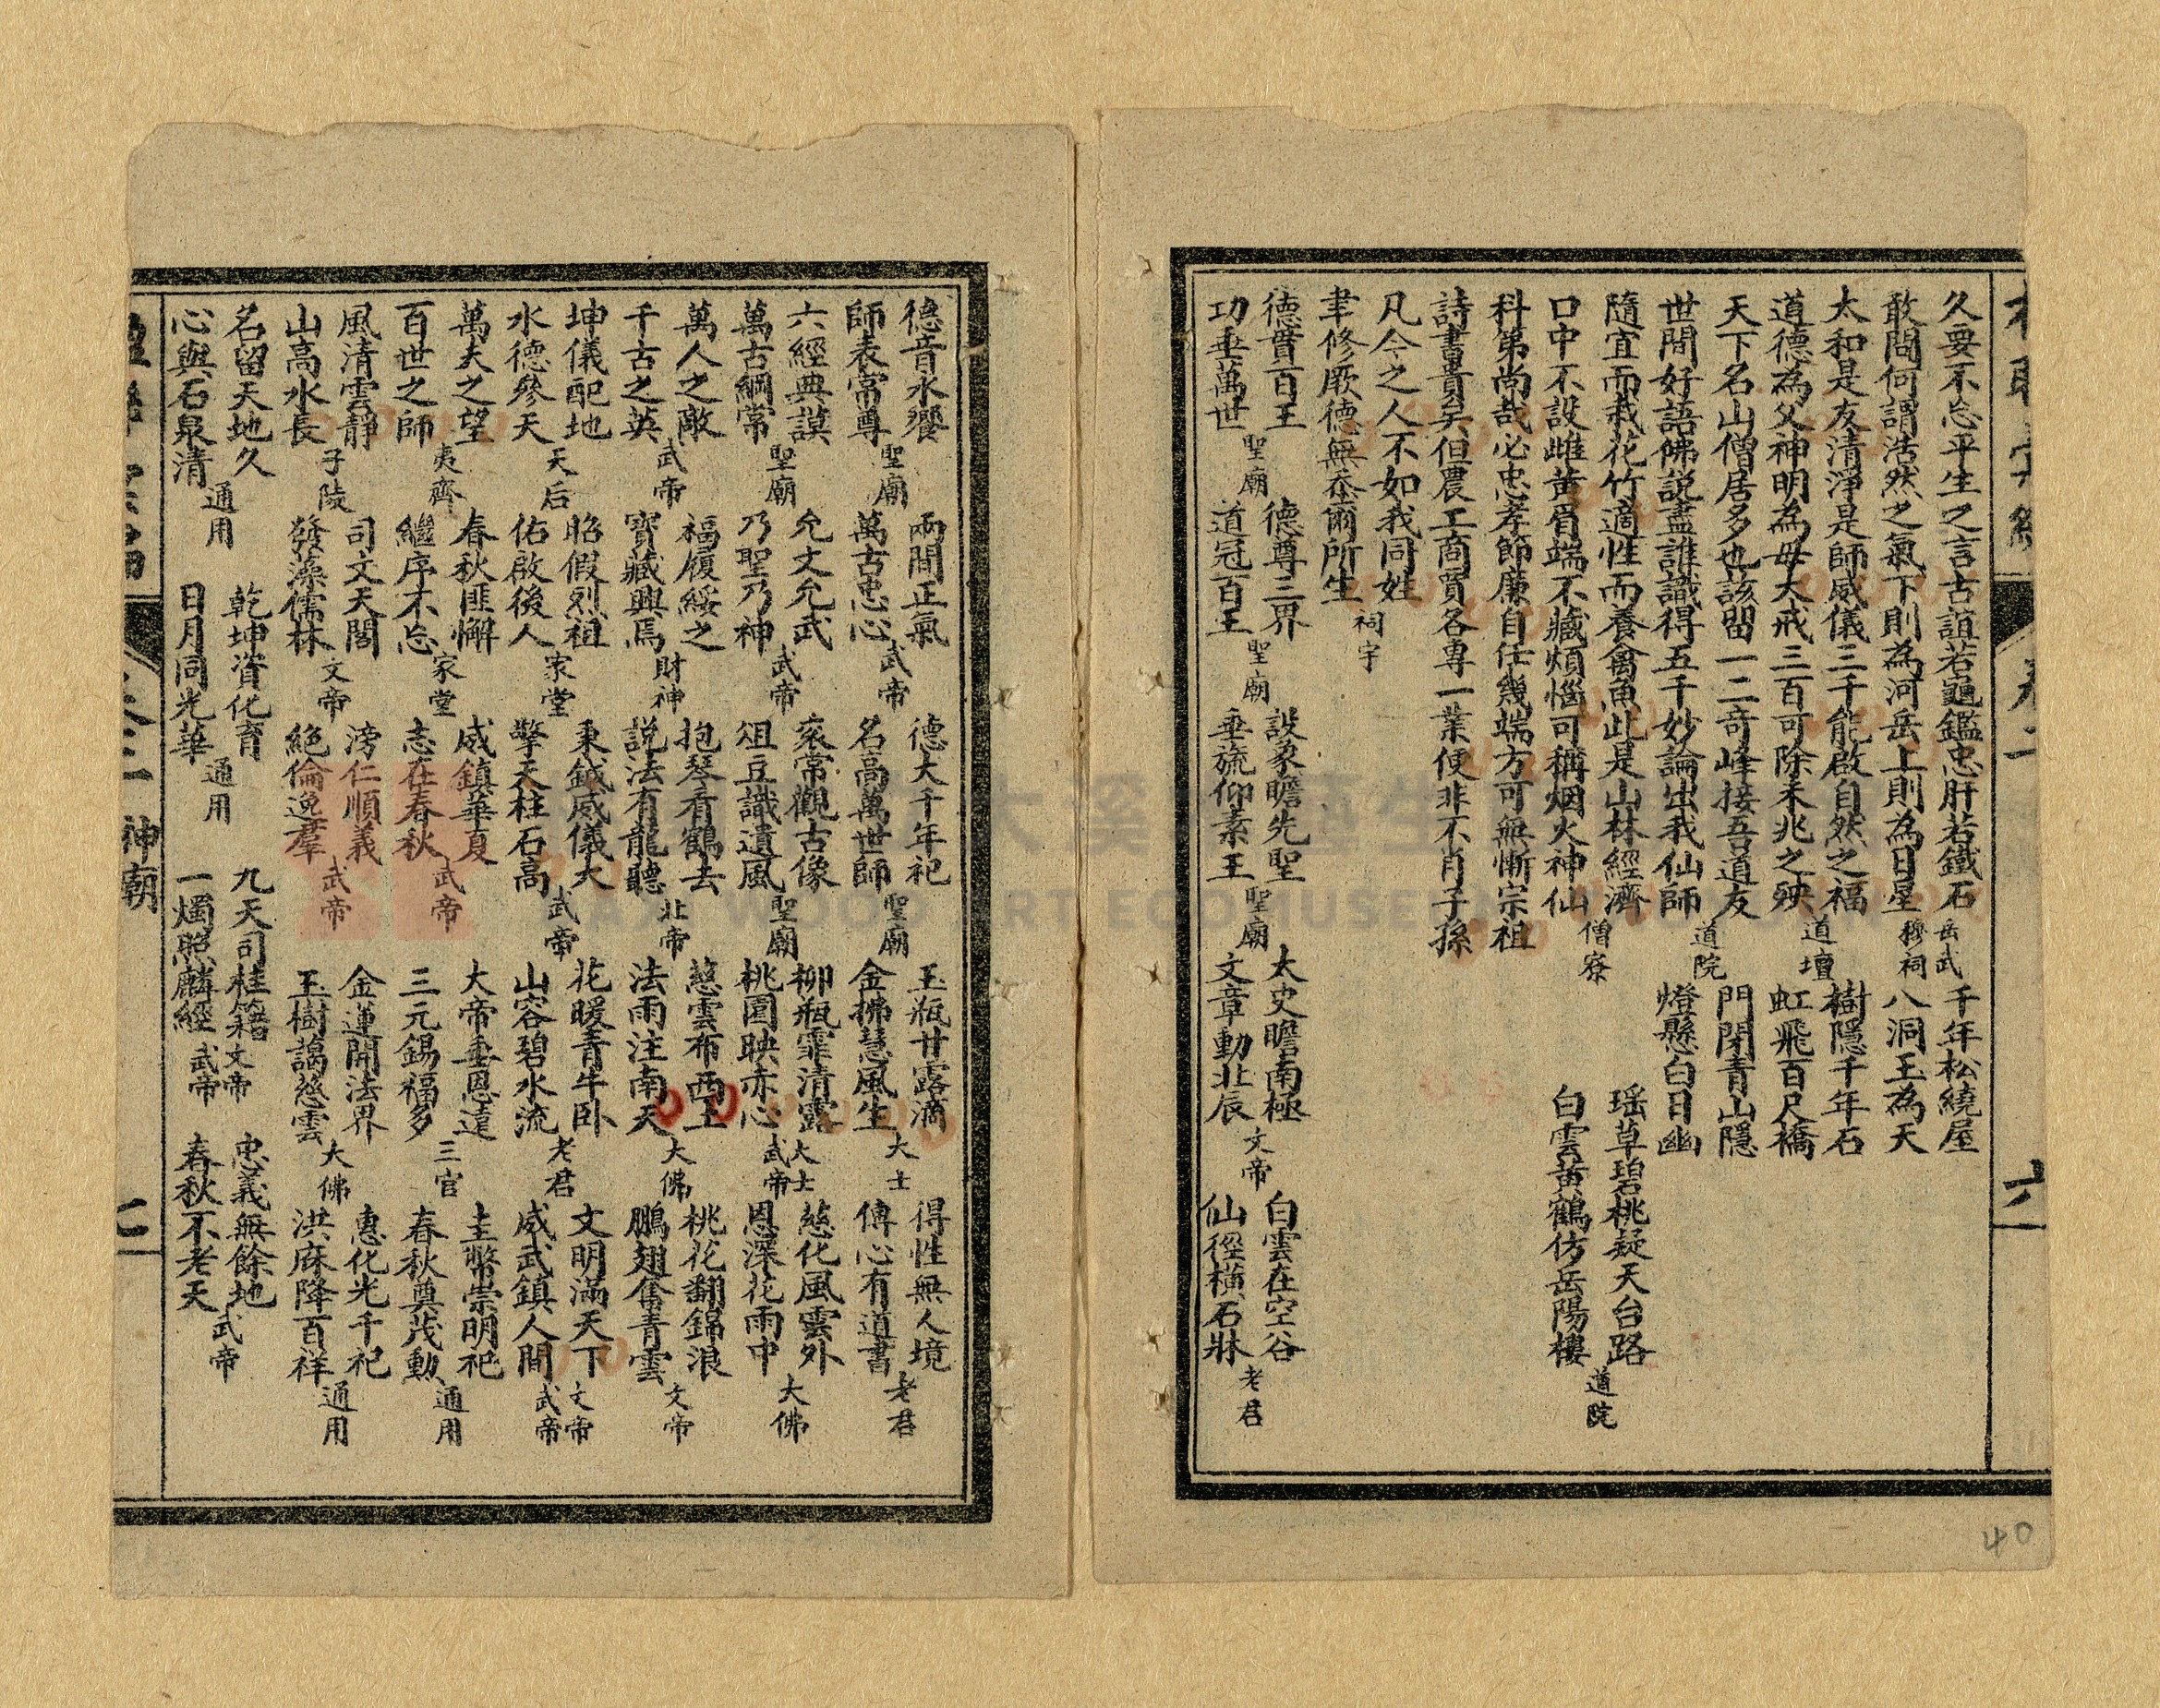 久要不忘平生之言古誼若龜鑑忠肝若鐵石 岳武穆祠 千年松繞屋
敢問何謂浩然之氣下則為河岳上則為日星 八洞玉為天
太和是友清淨是師威儀三千能啟自然之福 道壇 樹隱千年石
道德為父神明為母大戒三百可除未兆之殃 虹飛百尺橋
天下名山僧居多也該留一二奇峰接吾道友 道院 門閉青山隱
世間好語佛説盡誰識得五千妙論出我仙師 燈懸白日幽
隨宜而栽花竹適性而養禽魚此是山林經濟 僧寮 瑶草碧桃疑天台路
口中不設雌黃眉端不藏煩惱可稱烟火神仙 白雲黃鶴仿岳陽樓 道院
科第尚哉必忠孝節廉自任幾端方可無慚宗祖
詩書貴矣但農工商賈各專一業便非不肖子孫
凡今之人不如我同姓 祠宇
聿修厥德無忝爾所生
德貫百王 聖廟 德尊三界 聖廟 設象瞻先聖 聖廟 太史瞻南極 文帝 白雲在空谷 老君
功垂萬世 道冠百王 垂旒仰素王 文章動北辰 仙徑橫石牀
卷二
六
德音永饗 聖廟 兩間正氣 武帝 德大千年祀 聖廟 玉瓶甘露滴 大士 得性無人境 老君
師表常尊 萬古忠心 名高萬世師 金拂慧風生 傳心有道書
六經典謨 聖廟 允文允武 武帝 衮常觀古像 聖廟 柳瓶霏清露 大士 慈化風雲外 大佛
萬古綱常 乃聖乃神 俎豆識遺風 桃園映赤心 武帝 恩深花雨中
萬人之敵 武帝 福履綏之 財神 抱琴看鶴去 北帝 慈雲布西土 大佛 桃花翻錦浪 文帝
千古之英 寶藏興焉 説法有龍聽 法雨注南天 鵬翅奮青雲
坤儀配地 天后 昭假烈祖 家堂 秉鉞威儀大 武帝 花暖青牛卧 老君 文明滿天下 文帝
水德參天 佑啟後人 擎天柱石高 山容碧水流 威武鎮人間 武帝
萬夫之望 夷齊 春秋匪懈 家堂 威鎮華夏 武帝 大帝垂恩遠 三官 圭幣崇明祀 通用
百世之師 繼序不忘 志在春秋 三元錫福多 春秋奠茂勳
風清雲靜 子陵 司文天閣 文帝 滂仁順義 武帝 金運開法界 大佛 惠化光千祀 通用
山高水長 發藻儒林 絕倫逸羣 玉樹藹慈雲 洪庥降百祥
名留天地久 通用 乾坤資化育 通用 九天司桂籍 文帝 忠義無餘地 武帝
心與石泉清 日月同光華 一燭照麟經 武帝 春秋不老天
神廟
40